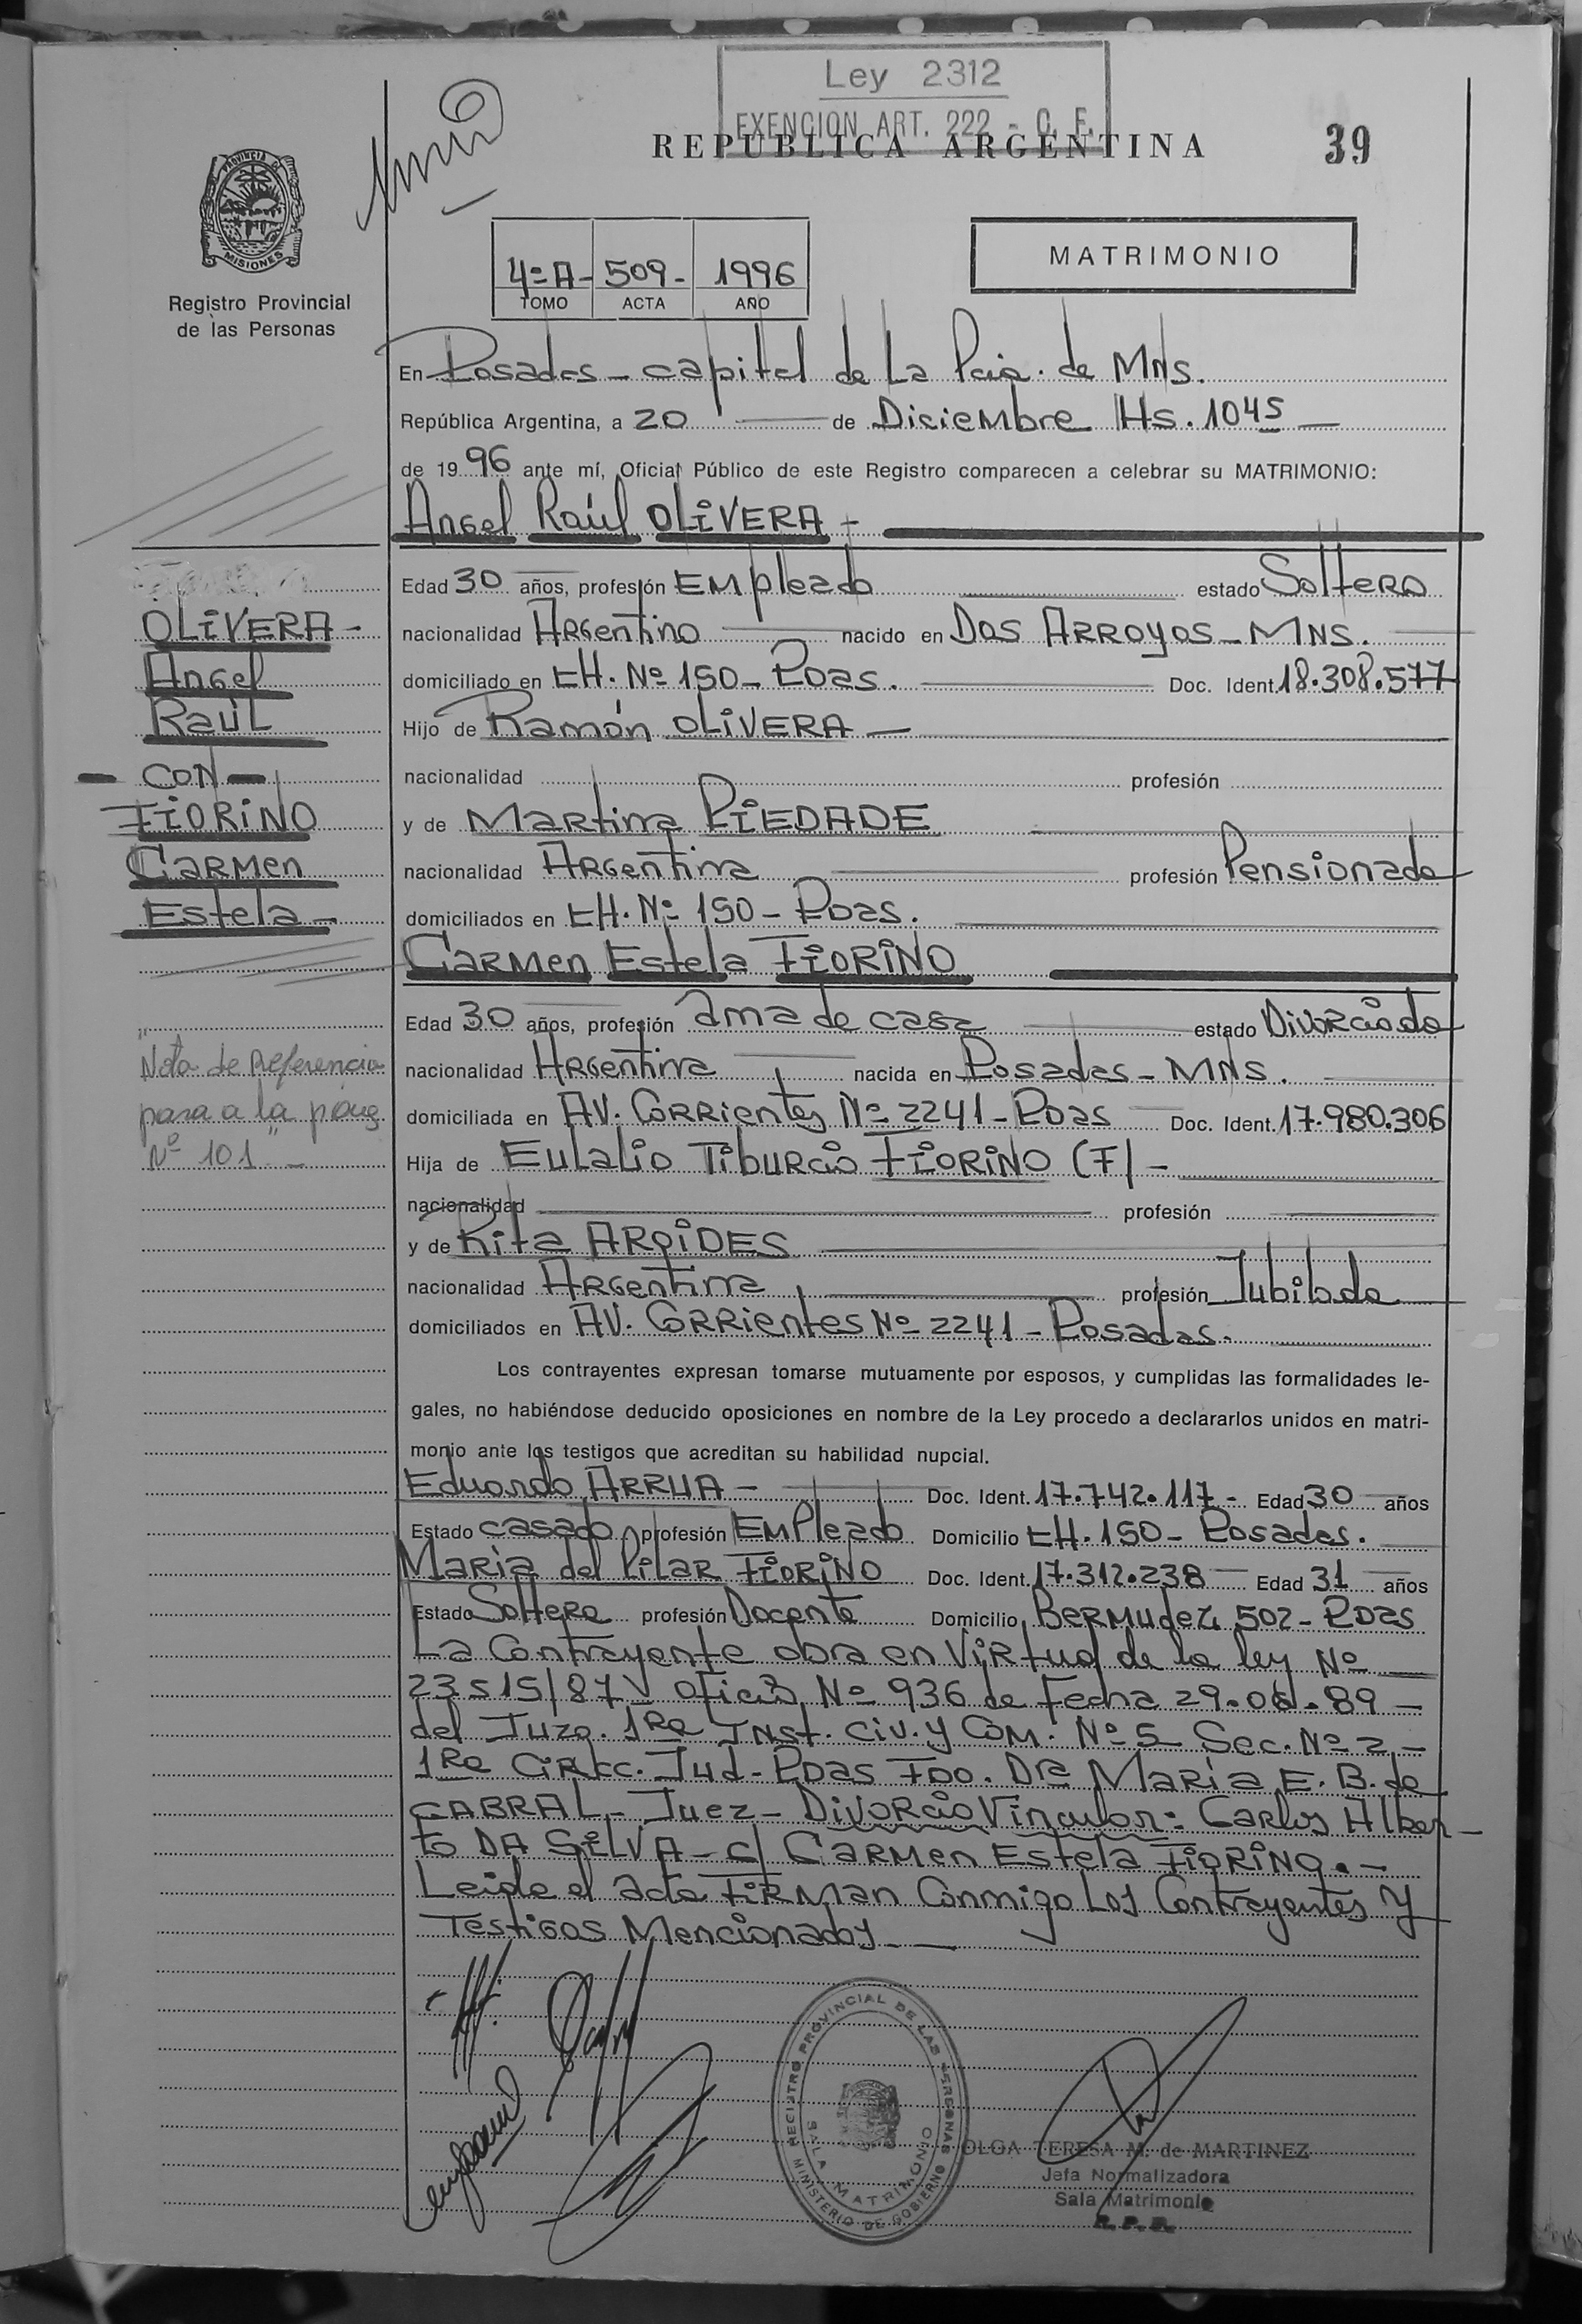 Ley 2312
EXENCION ART. 222 - C. F.
REPUBLICA ARGENTINA
39
PROVINCIA DE
MISIONES
Registro Provincial
de las Personas
4º A- 509- 1996
TOMO ACTA AÑO
MATRIMONIO
En Posadas - capital de La Pcia. de MNS.
República Argentina, a 20 de Diciembre Hs. 10 45
de 1996 ante mí, Oficial Público de este Registro comparecen a celebrar su MATRIMONIO:
Angel Raúl OLIVERA -
Edad 30 años, profesión Empleado estado Soltero
nacionalidad Argentino nacido en Dos Arroyos - MNS.
domiciliado en CH. Nº 150 - Pdas. Doc. Ident. 18.308.577
Hijo de Ramón OLIVERA -
nacionalidad profesión
y de Martina PIEDADE
nacionalidad Argentina profesión Pensionada
domiciliados en CH. Nº 150 - Pdas.
OLIVERA -
Angel
Raúl
- CON -
FIORINO
Carmen
Estela -
Carmen Estela FIORINO
Edad 30 años, profesión ama de casa estado Divorciada
nacionalidad Argentina nacida en Posadas - MNS.
domiciliada en AV. Corrientes Nº 2241 - Pdas Doc. Ident. 17.980.306
Hija de Eulalio Tiburcio FIORINO (F) -
nacionalidad profesión
y de Rita
nacionalidad Argentina profesión Jubilada
domiciliados en AV. Corrientes Nº 2241 - Posadas.
"Nota de referencia
pasa a la pág
Nº 101" -
Los contrayentes expresan tomarse mutuamente por esposos, y cumplidas las formalidades le-
gales, no habiéndose deducido oposiciones en nombre de la Ley procedo a declararlos unidos en matri-
monio ante los testigos que acreditan su habilidad nupcial.
Eduardo ARRUA - Doc. Ident. 17.742.117 - Edad 30 años
Estado casado profesión Empleado Domicilio CH. 150 - Posadas.
María del Pilar FIORINO Doc. Ident. 17.312.238 Edad 31 años
Estado Soltera profesión Docente Domicilio Bermudez 502 - Pdas
La Contrayente obra en Virtud de la ley Nº
23515/87 y Oficio Nº 936 de Fecha 29.06.89 -
del Juzg. 1ra Inst. Civ. y Com. Nº 5 Sec. Nº 2 -
1ra Circc. Jud - Pdas Fdo. Dra María E. B. de
CABRAL - Juez - Divorcio Vincular: Carlos Alber-
to DA SILVA - c/ Carmen Estela FIORINO. -
Leida el acta Firman Conmigo Los Contrayentes y
Testigos Mencionados
REGISTRO PROVINCIAL DE LAS PERSONAS
MINISTERIO DE GOBIERNO
SALA MATRIMONIO
OLGA TERESA M. de MARTINEZ
Jefa Normalizadora
Sala Matrimonio
R. P. P.